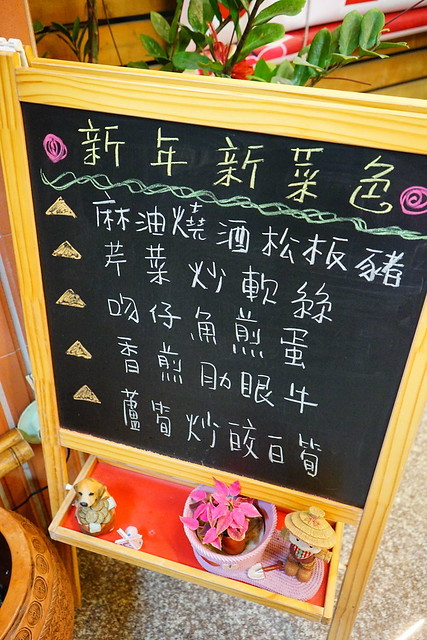 新年新菜色
麻油燒酒松板豬
芹菜炒軟絲
吻仔魚煎蛋
香煎肋眼牛
蘆筍炒皎白筍